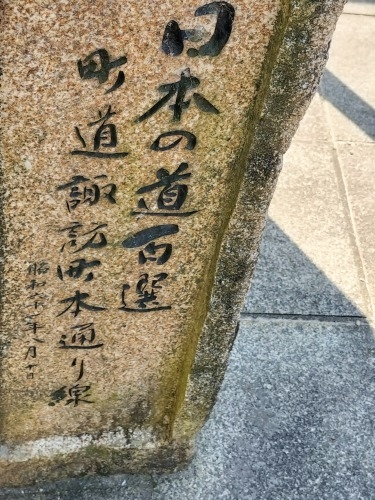 日本の道百選
町道諏訪町本通り線
昭和六十一年八月十日